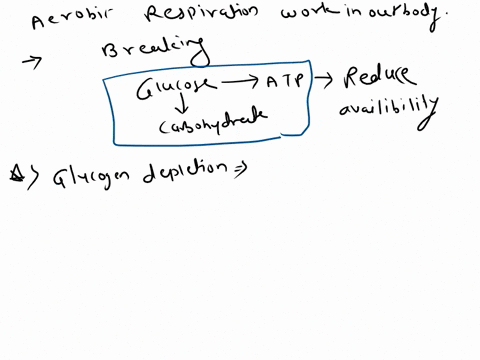 Aerobic Respiration work in our body.
→ Breaking
Glucose → ATP → Reduce
↓ availibility
Carbohydrate
A> Glycogen depletion ⇒